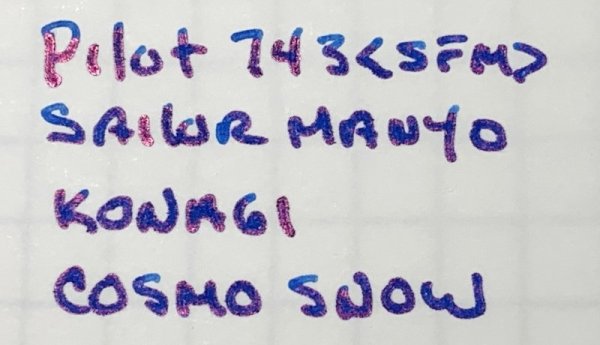 Pilot 743<SFM>
SAILOR MANYO
KONAGI
COSMO SNOW